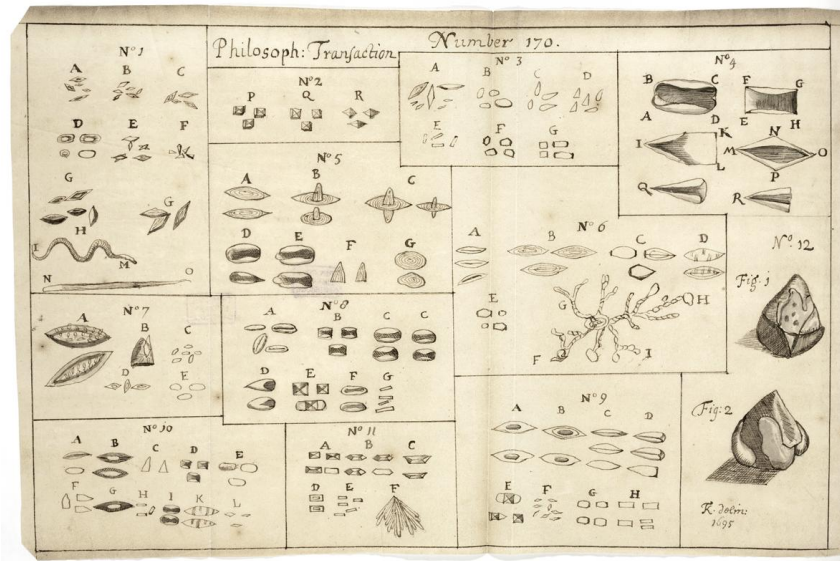 Philosoph: Transaction Number 170.
No 1
A B C
D E F
G
G
H
I
M
N O
No 2
P Q R
No 3
A B C D
E F G
No 4
B C F G
A D E H
I K N
L M O
P
Q R
No 5
A B C
D E F G
No 6
A B C D
E G H
F I
No 7
A B C
D E
No 8
A B C C
D E F G
No 9
A B C D
E F G H
No 10
A B C D E
F G H I K L
No 11
A B C
D E F
No 12
Fig. 1
Fig: 2
R. delin:
1695